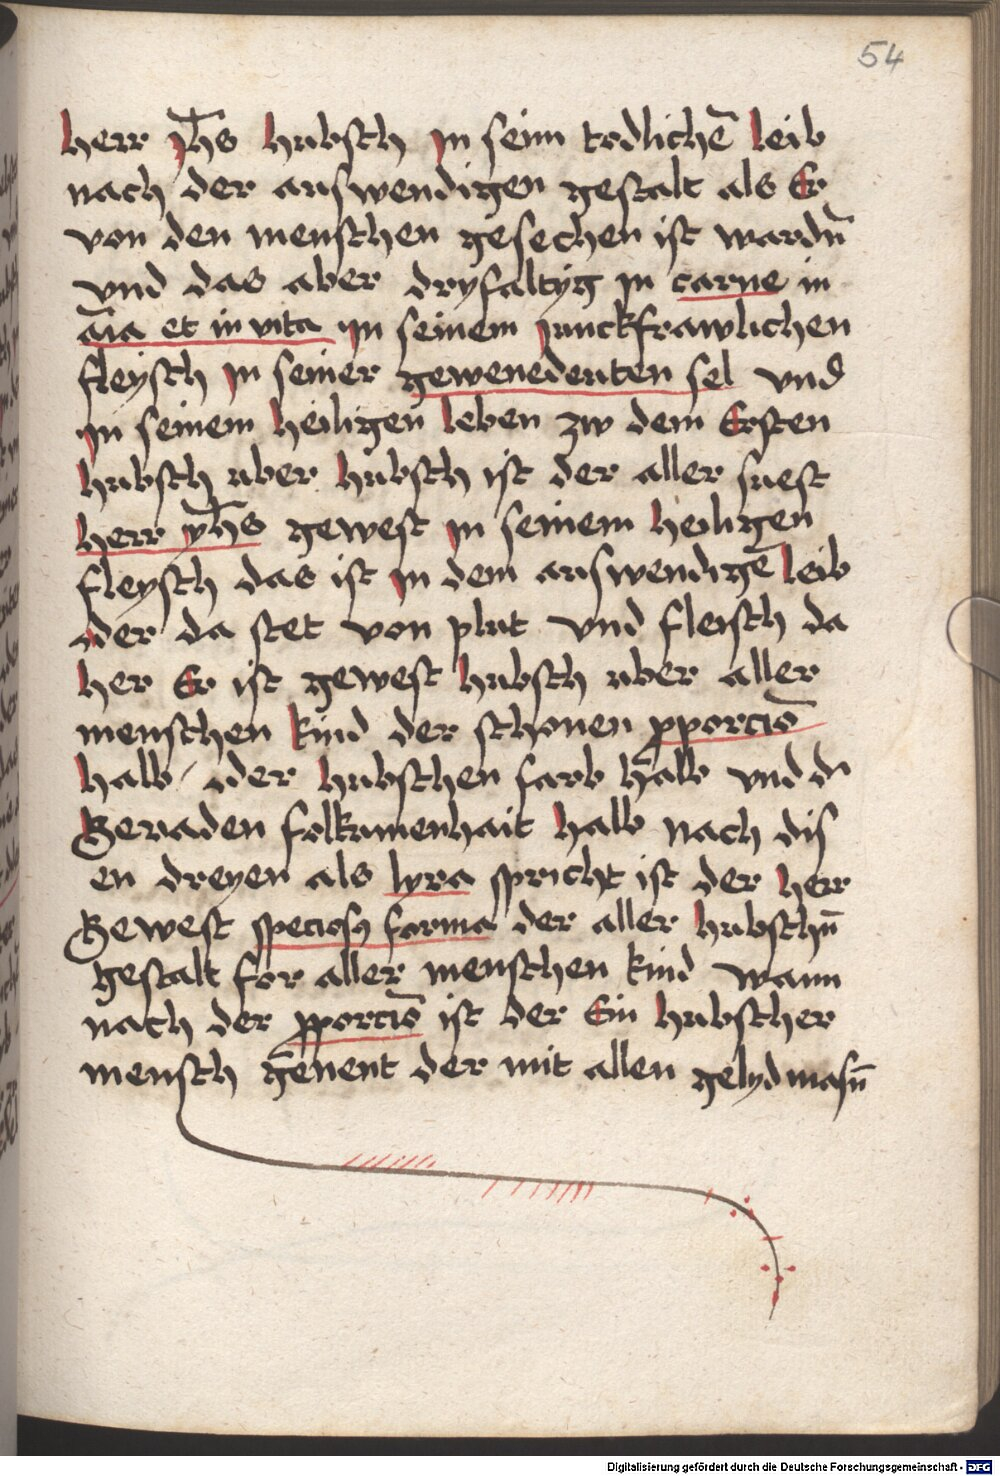 54
herr yh̄s hubsch jn seim todlichē leib
nach der auswendigen gestalt als Er
von den menschen gesechen ist wardn̄
vnd das aber dryfaltyg jn carne in
āīa et in vita jn seinem junckfrawlichen
fleysch jn seiner gewenedeuten sel vnd
jn seinem heiligen leben zw dem Ersten
hubsch uber hubsch ist der aller suest
herr yh̄s gewest jn seinem heiligen
fleysch das ist jn dem auswendigē leib
oder da stet von plut vnd fleisch da
her Er ist gewest hubsch uber aller
menschen kind der schonen pporciō
halb / oder hubschen farb halb vnd
Geraden folkumenhait halb nach dis
en dreyen als lyra spricht ist der herr
Gewest speciosꝯ forma der aller hubschn̄
gestalt for aller menschen kind wann
nach der pporciō ist der Ein hubscher
mensch genent der mit allen gelydmasn̄
Digitalisierung gefördert durch die Deutsche Forschungsgemeinschaft - DFG